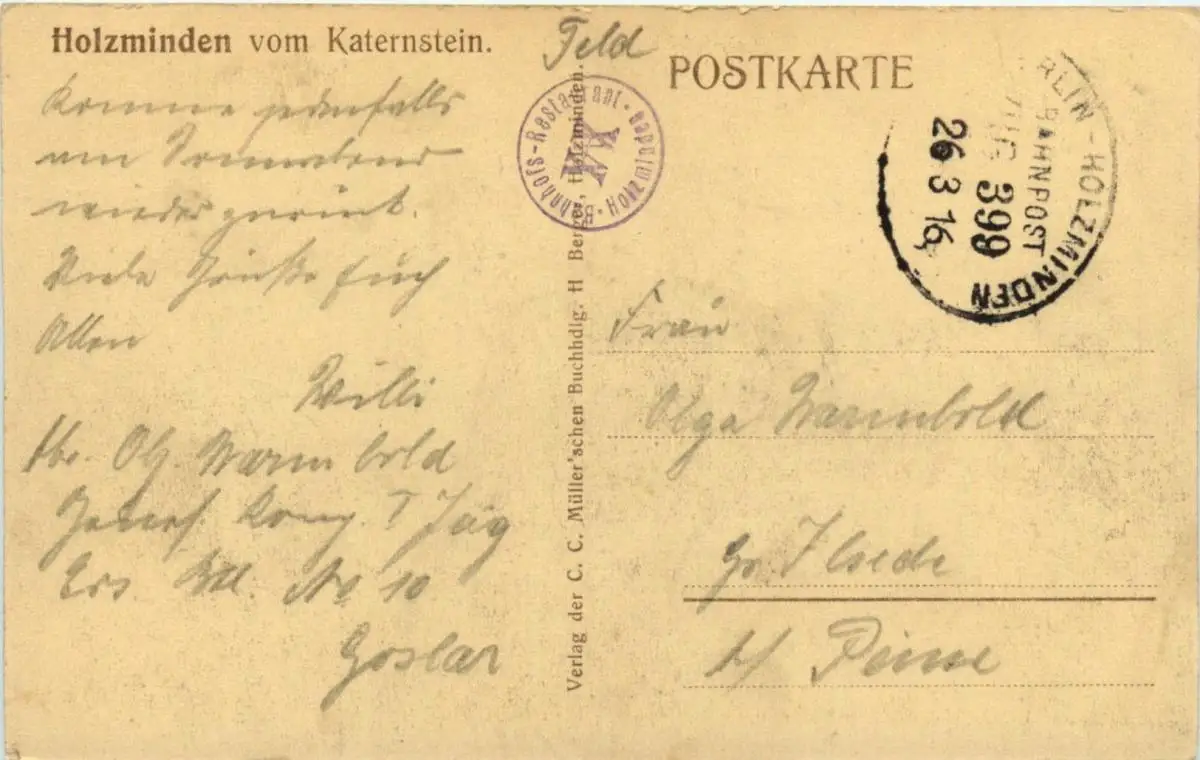 Holzminden vom Katernstein.
Feld
POSTKARTE
Komme jedenfalls
am Sonnabend
wieder zurück.
Viele Grüße Euch
Allen
Willi
Abs. Obj. Warmbold
Genes. Komp. Jäg
Ers. Btl. No 10
Goslar
Verlag der C. C. Müller'schen Buchhdlg. H Berger, Holzminden.
Bahnhofs-Restaurant · Holzminden ·
RLIN - HOLZMINDEN
BAHNPOST
ZUG 399
26 3 16
Frau
Olga Warmbold
Gr. Ilsede
b/ Peine